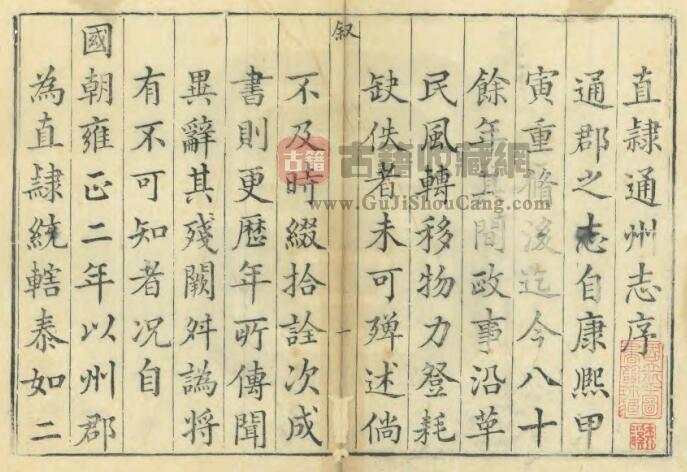 直隷通州志序
通郡之志自康熙甲
寅重脩後迄今八十
餘年其間政事沿革
民風轉移物力登耗
缺佚者未可殫述倘
叙
一
不及時綴拾詮次成
書則更歷年所傳聞
異辭其殘闕舛譌將
有不可知者况自
國朝雍正二年以州郡
為直隷統轄泰如二
古籍
古籍收藏網
www.GuJiShouCang.com